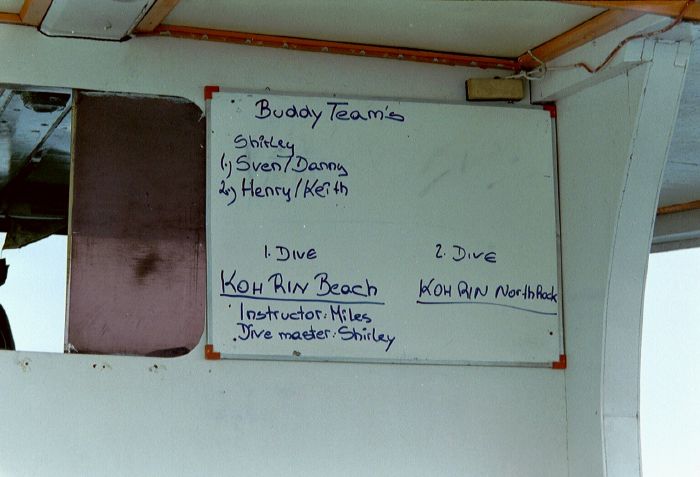 Buddy Team's
Shirley
1.) Sven/Danny
2.) Henry/Keith
1. Dive
2. Dive
Koh Rin Beach
Koh Rin North Rock
Instructor: Miles
Dive master: Shirley